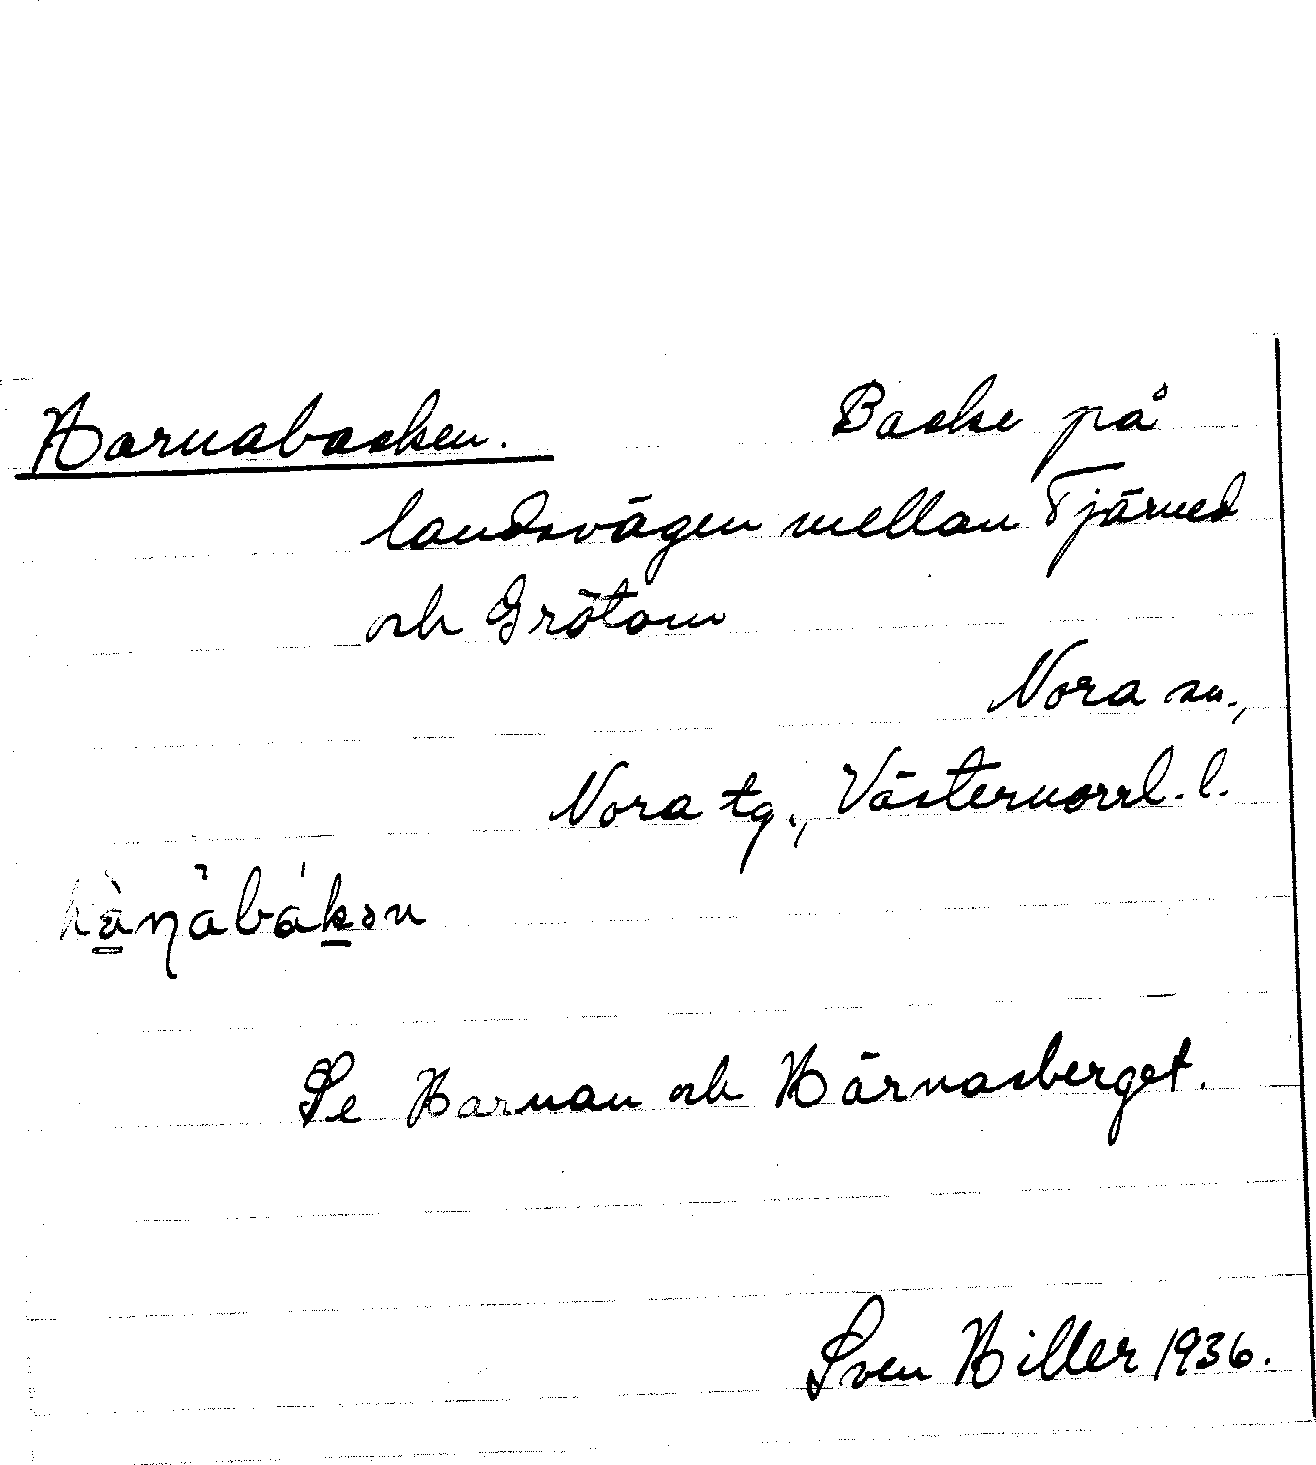 Harnabacken. Backe på
landsvägen mellan Tjärned
och Grötom
Nora sn.,
Nora tg., Västernorrl. l.
Se Harnan och Härnasberget.
Sven Hiller 1936.